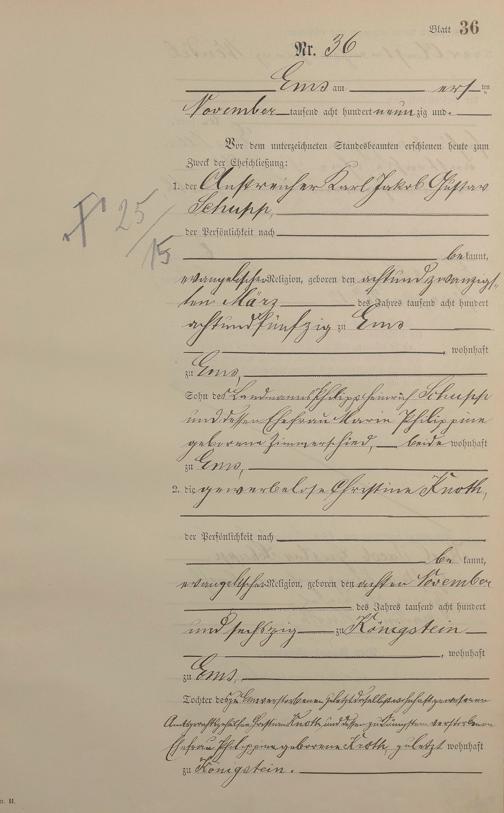 Blatt 36
Nr. 36
Ems am ersten
November tausend acht hundert neunzig und
Vor dem unterzeichneten Standesbeamten erschienen heute zum
Zweck der Eheschließung:
1. der Anstreicher Karl Jakob Gustav
Schupp,
der Persönlichkeit nach
bekannt,
evangelischer Religion, geboren den achtundzwanzigs-
ten März des Jahres tausend acht hundert
achtundfünfzig zu Ems
, wohnhaft
zu Ems,
Sohn des Landmanns Philipp Heinrich Schupp
und dessen Ehefrau Marie Philippine
geborene Zimmerschied, beide wohnhaft
zu Ems,
2. die gewerbelose Christine Knoth,
der Persönlichkeit nach
bekannt,
evangelischer Religion, geboren den achten November
des Jahres tausend acht hundert
und sechszig zu Königstein
, wohnhaft
zu Ems,
Tochter des zu Ems verstorbenen zuletzt daselbst wohnhaft gewesenen
Knoth und dessen zu verstorbenen
Ehefrau Philippine geborene Kroth, zuletzt wohnhaft
zu Königstein.
25/15